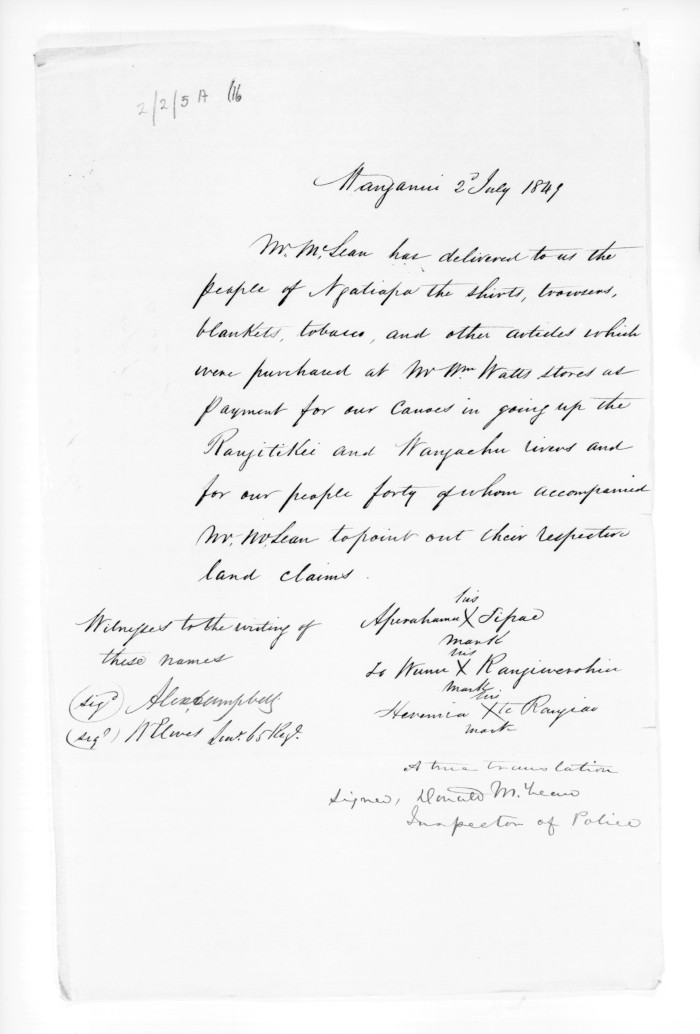 2/2/5A (16
Wanganui 2d July 1849
Mr. McLean has delivered to us the
people of Ngatiapa the shirts, trowsers,
blankets, tobacco, and other articles which
were purchased at Mr Wm Watts stores as
payment for our Canoes in going up the
Rangitikei and Wangaehu rivers and
for our people forty of whom accompanied
Mr. McLean to point out their respective
land claims.
Witnesses to the writing of
these names
(sigd) Alex Campbell
(sigd) W Elwes Lieut. 65 Regt.
his
Aperahama X Tipae
mark
his
X
mark
his
X te Rangiao
mark
A true translation
signed, Donald McLean
Inspector of Police